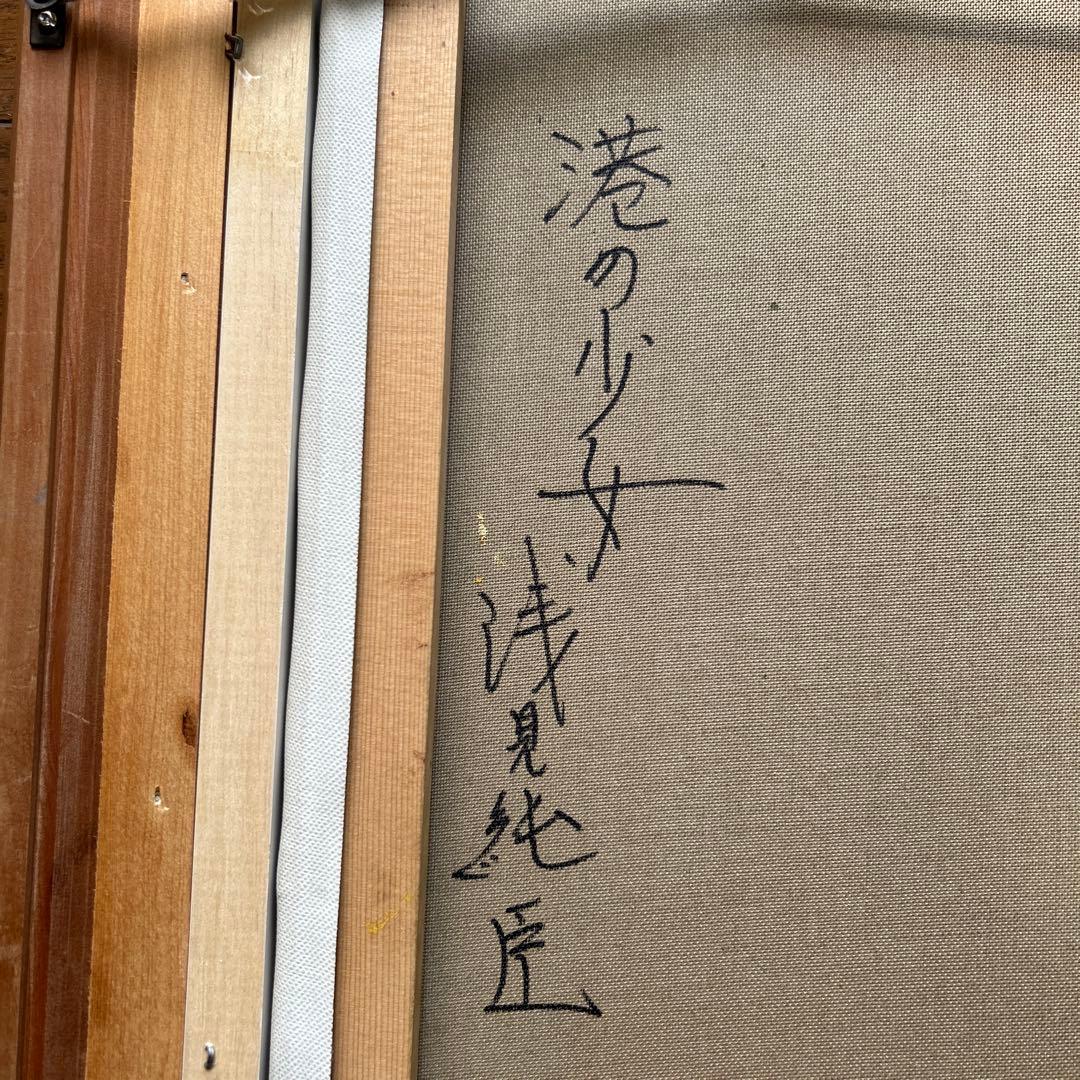 港の少女
浅見純匠